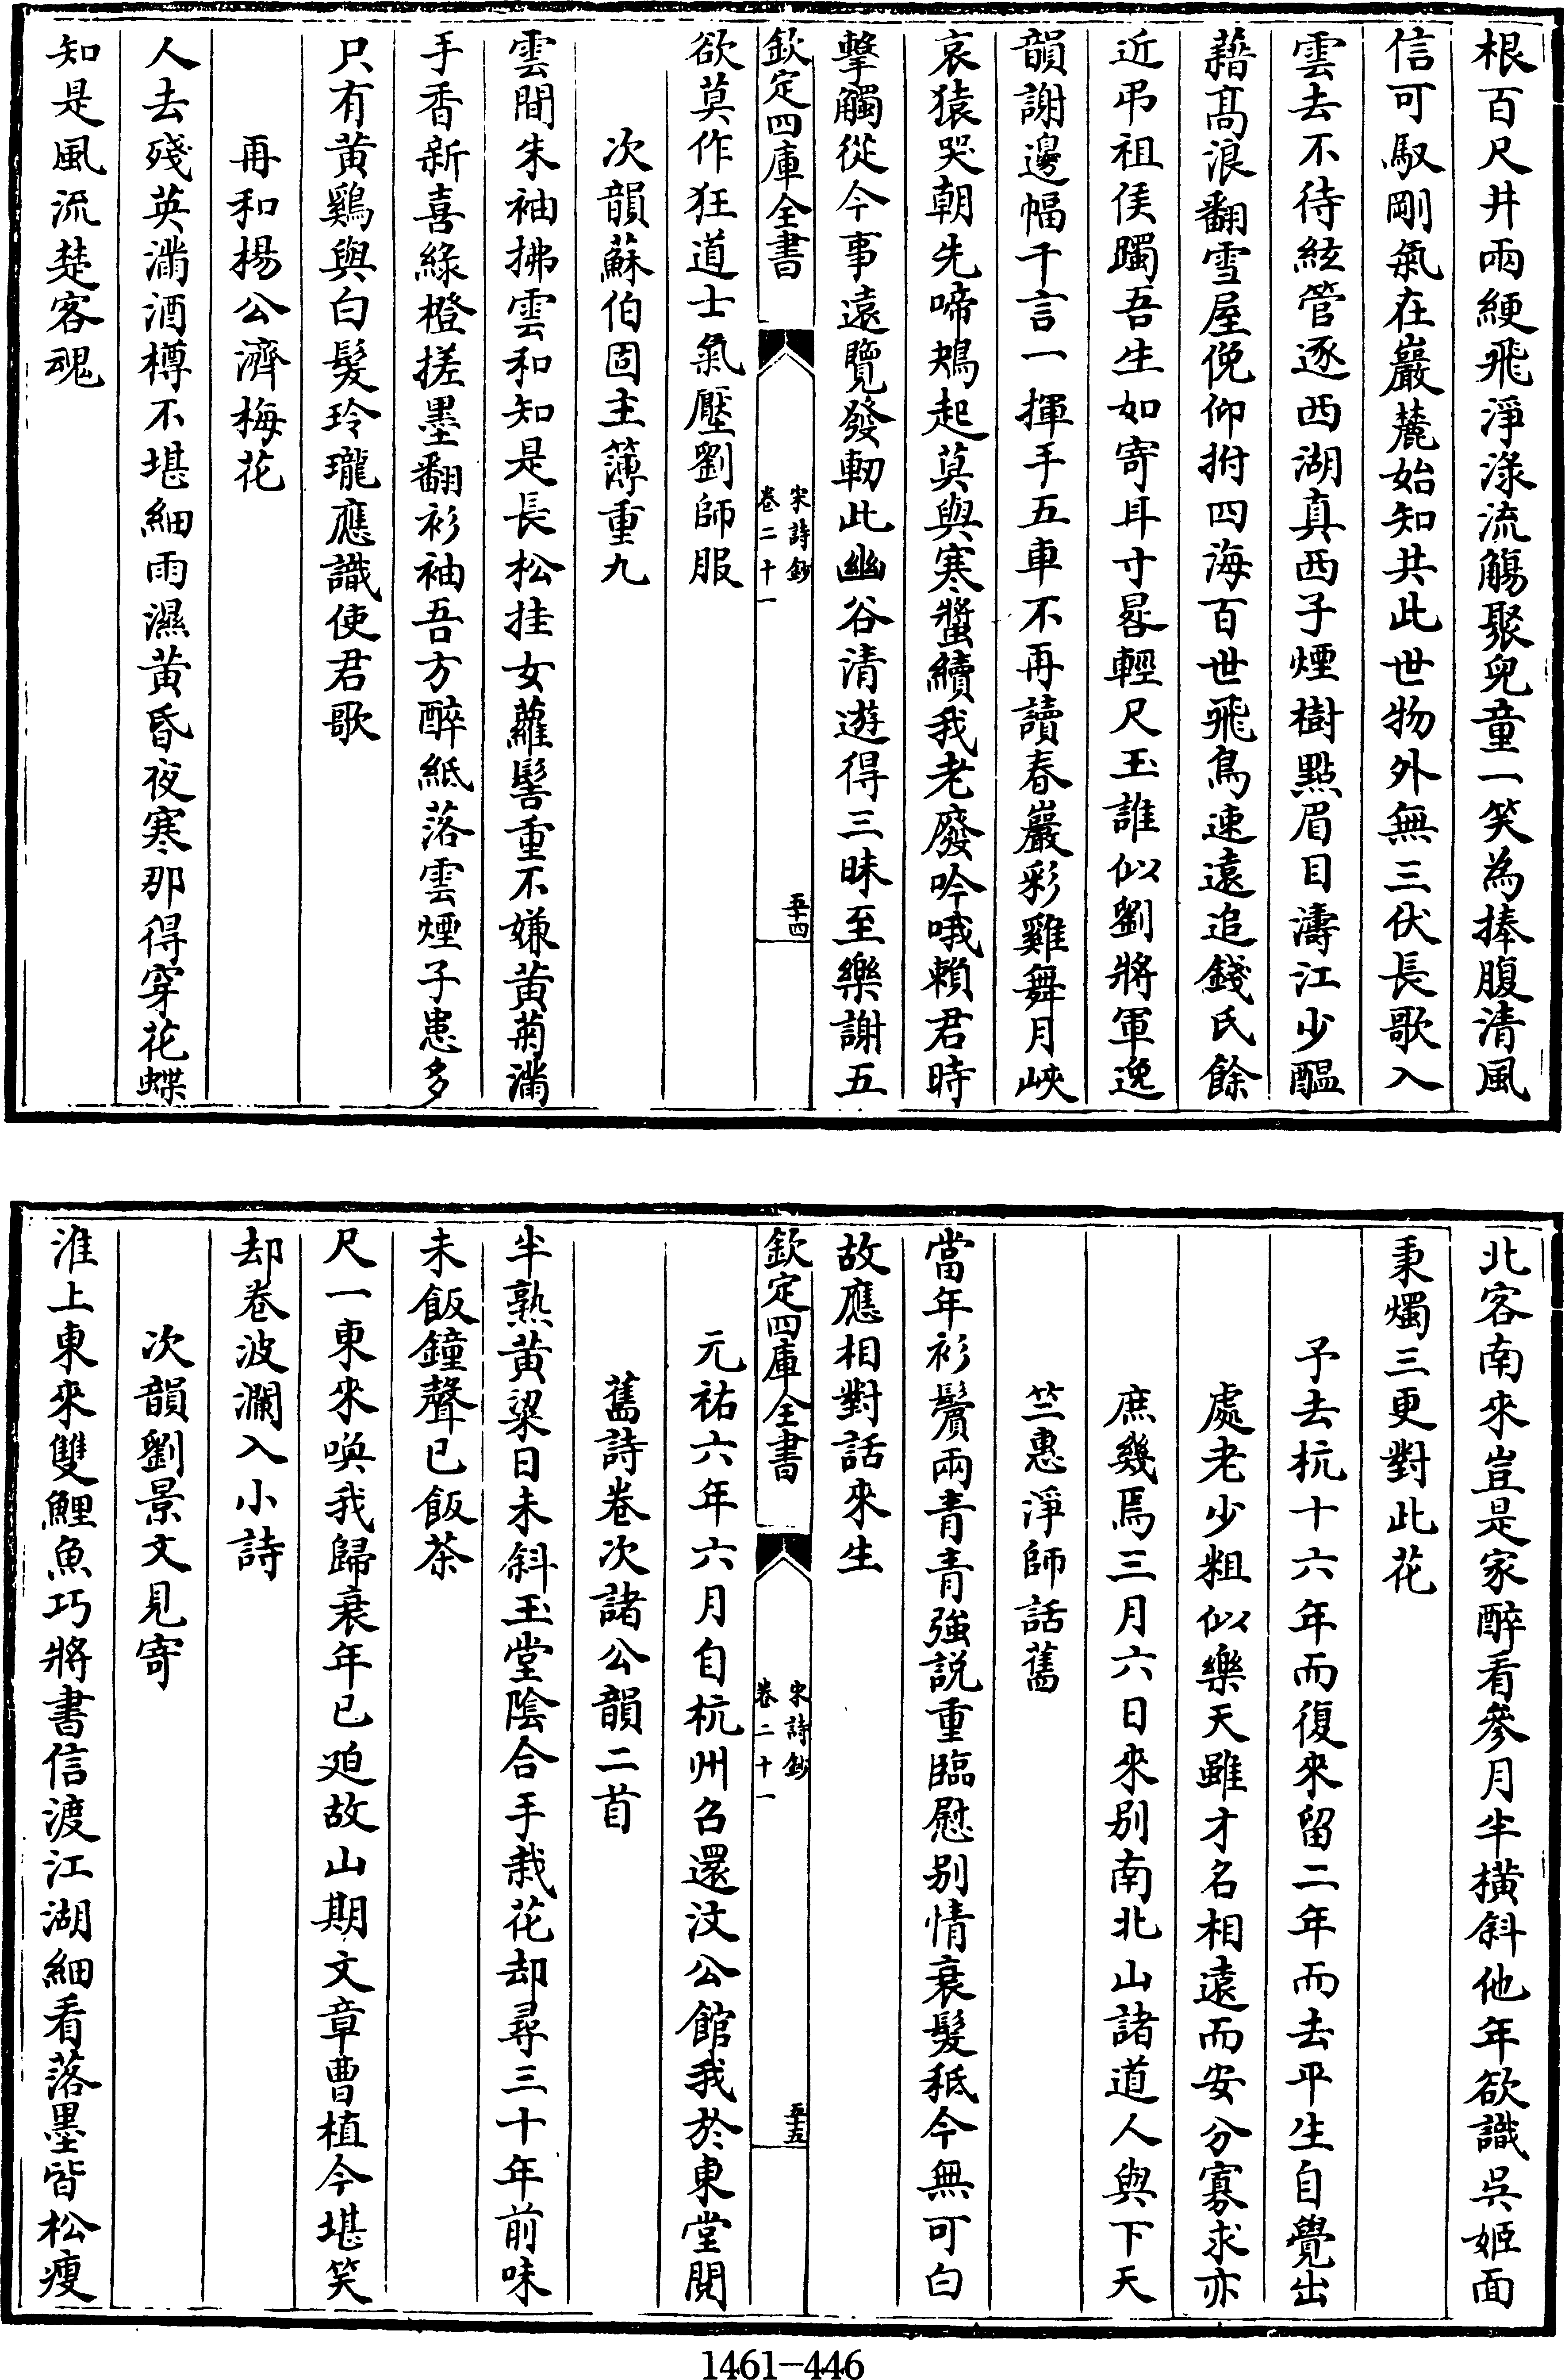 根百尺井兩綆飛淨渌流觴聚兒童一笑為捧腹清風
信可馭剛氣在巖麓始知共此世物外無三伏長歌入
雲去不待絃管逐西湖真西子煙樹點眉目濤江少醞
藉髙浪翻雪屋俛仰拊四海百世飛鳥速遠追錢氏餘
近弔祖侯躅吾生如寄耳寸晷輕尺玉誰似劉將軍逸
韻謝邊幅千言一揮手五車不再讀春巖彩雞舞月峽
哀猿哭朝先啼鴂起莫與寒螿續我老廢吟哦賴君時
擊觸從今事遠覽發軔此幽谷清遊得三昧至樂謝五
欽定四庫全書
宋詩鈔
卷二十一
五十四
欲莫作狂道士氣壓劉師服
次韻蘇伯固主簿重九
雲間朱袖拂雲和知是長松挂女蘿髻重不嫌黄菊滿
手香新喜緑橙搓墨翻衫袖吾方醉紙落雲煙子患多
只有黄鷄與白髮玲瓏應識使君歌
再和楊公濟梅花
人去殘英滿酒樽不堪細雨濕黄昏夜寒那得穿花蝶
知是風流楚客魂
北客南來豈是家醉看參月半橫斜他年欲識吳姬面
秉燭三更對此花
予去杭十六年而復來留二年而去平生自覺出
處老少粗似樂天雖才名相遠而安分寡求亦
庶幾焉三月六日來别南北山諸道人與下天
竺惠淨師話舊
當年衫鬢兩青青強説重臨慰别情衰髮秪今無可白
故應相對話來生
欽定四庫全書
宋詩鈔
卷二十一
五十五
元祐六年六月自杭州召還汶公館我於東堂閲
舊詩卷次諸公韻二首
半熟黄粱日未斜玉堂陰合手栽花却尋三十年前味
未飯鐘聲已飯茶
尺一東來喚我歸衰年已廹故山期文章曹植今堪笑
却卷波瀾入小詩
次韻劉景文見寄
淮上東來雙鯉魚巧將書信渡江湖細看落墨皆松瘦
1461-446